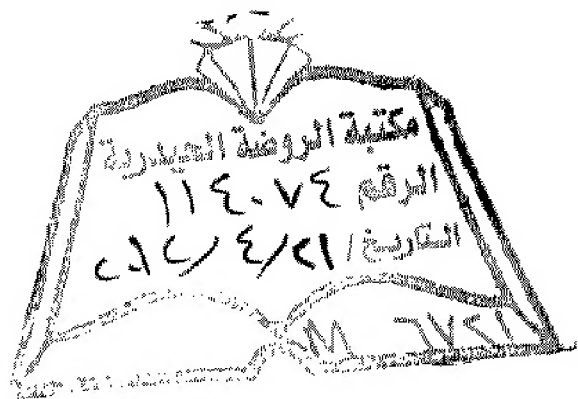 مكتبة الروضة الحيدرية
الرقم ١١٤٠٧٤
التاريخ / ٢١ / ٤ / ٢٠١٢